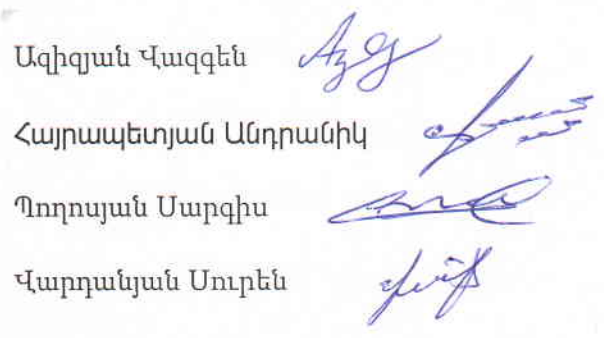 Ազիզյան Վազգեն
Հայրապետյան Անդրանիկ
Պողոսյան Սարգիս
Վարդանյան Սուրեն